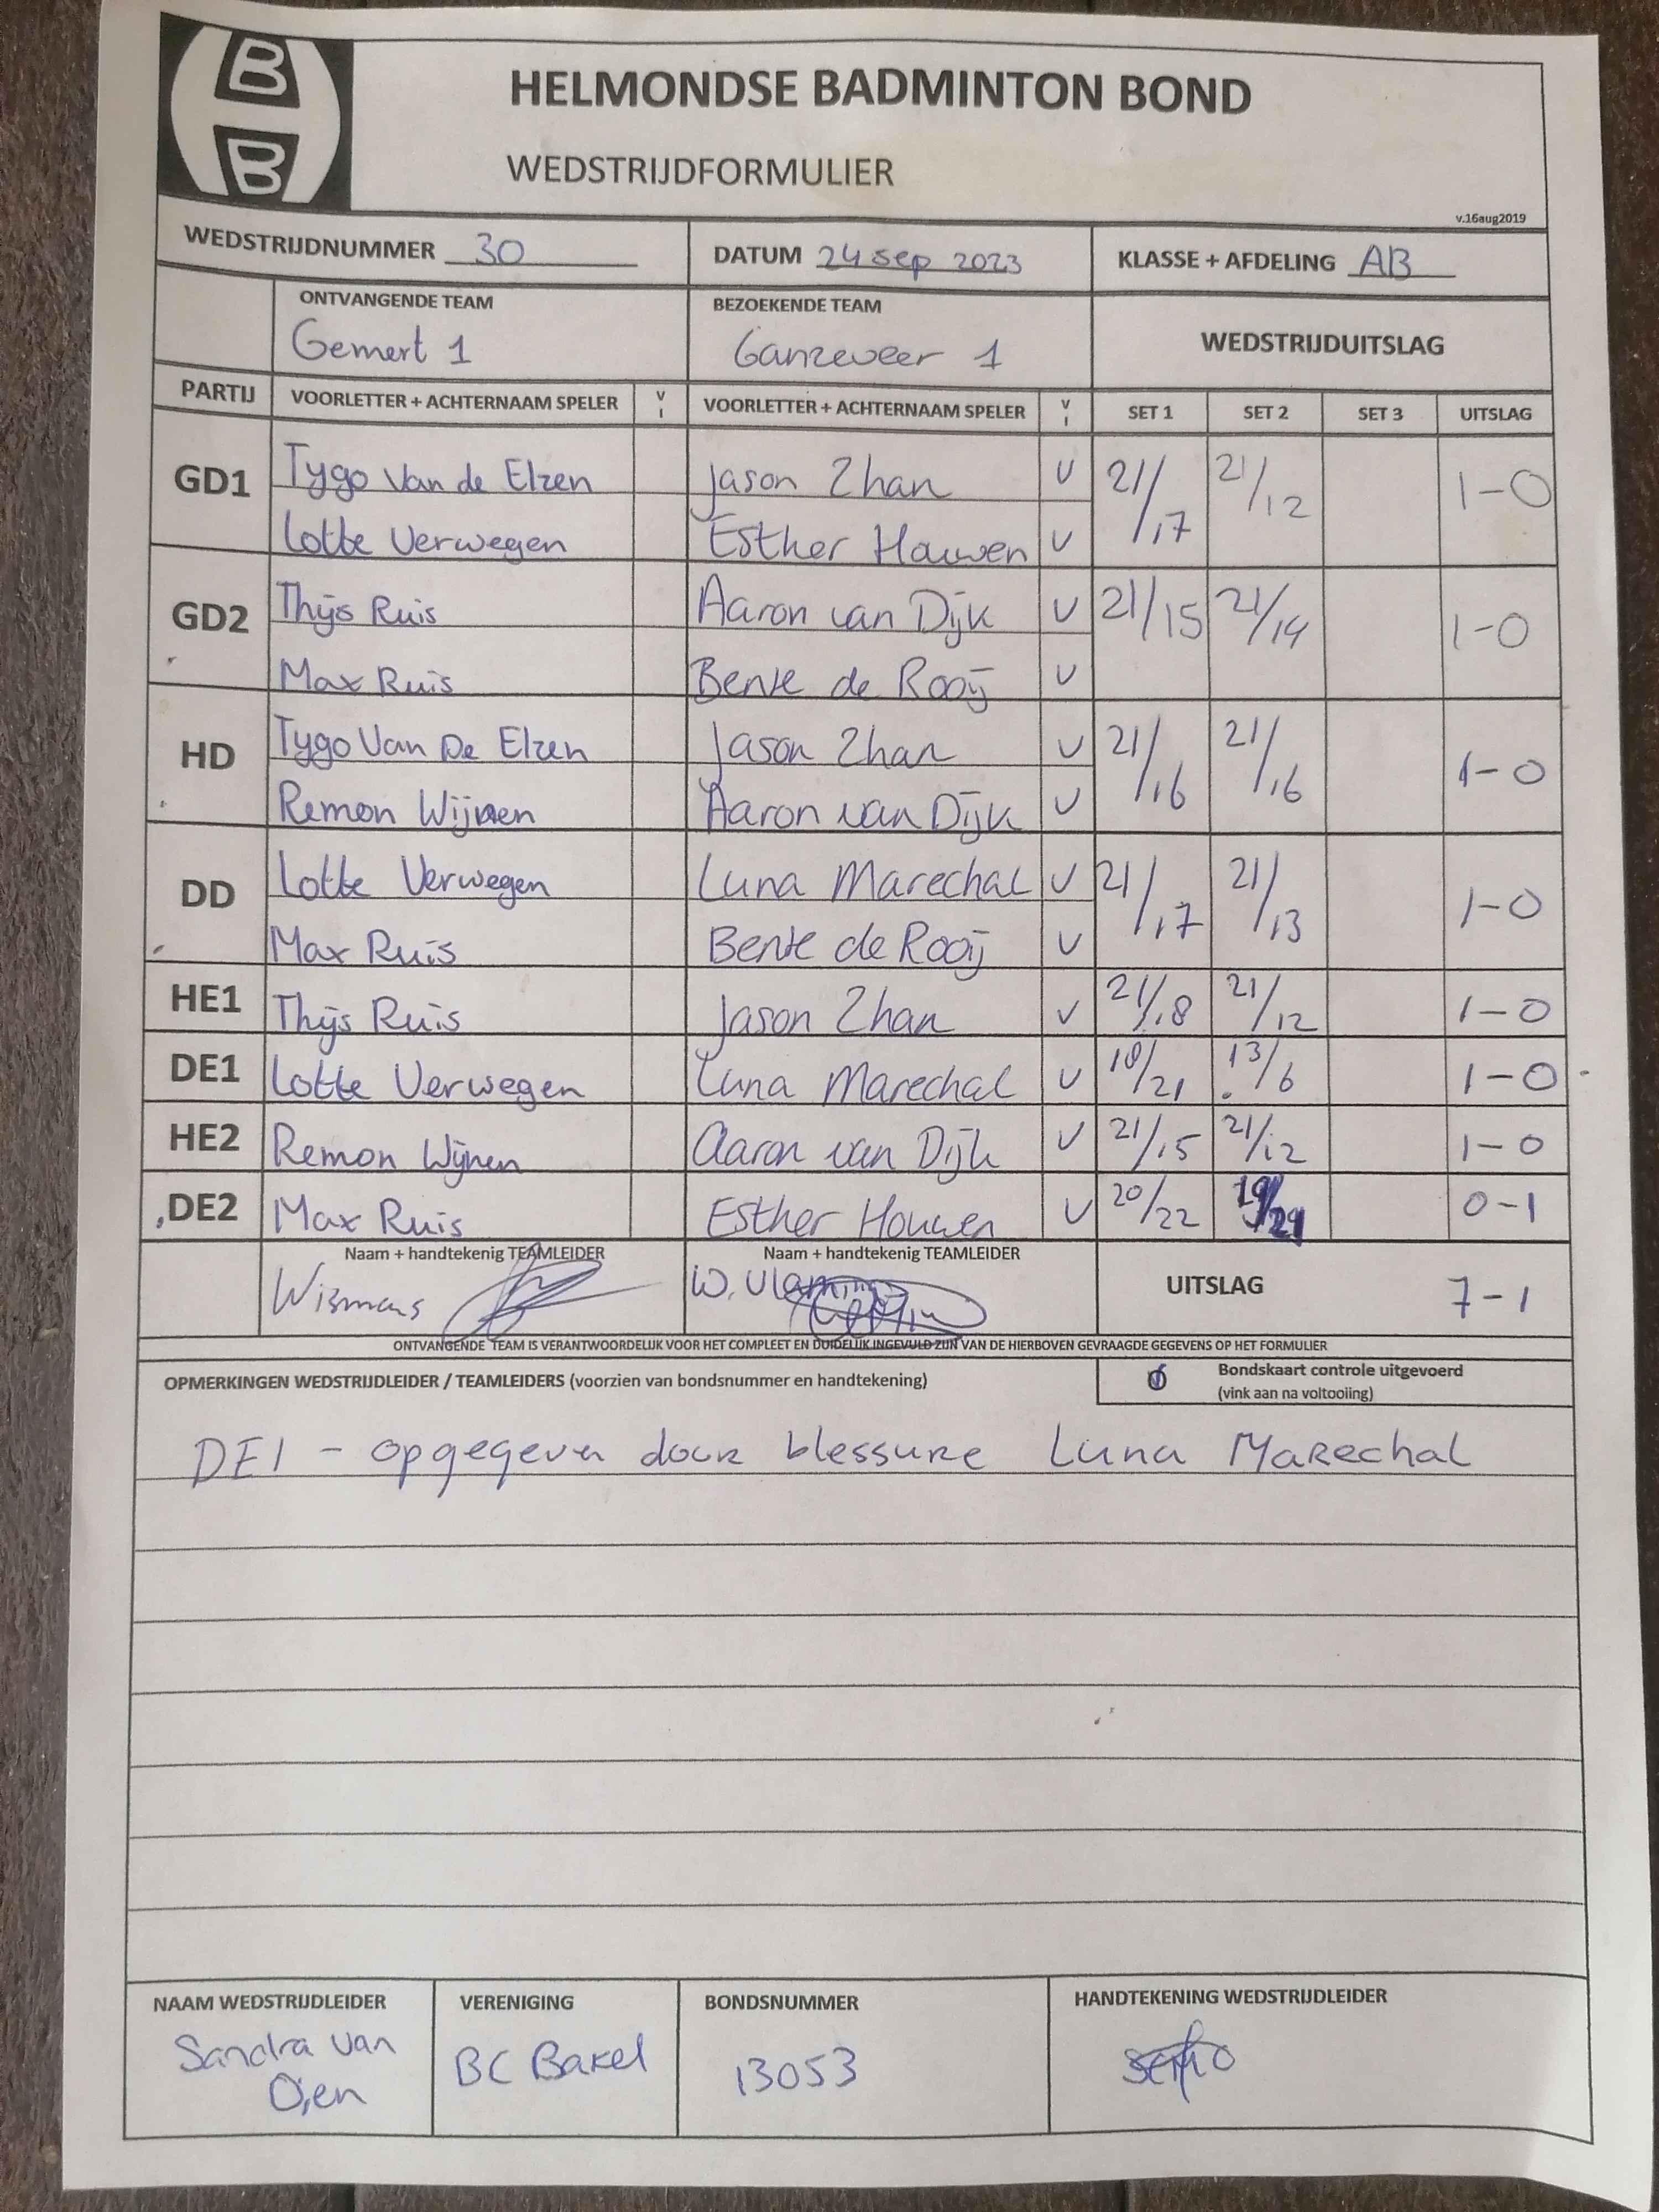 B
B
HELMONDSE BADMINTON BOND
WEDSTRIJDFORMULIER
v.16aug2019
WEDSTRIJDNUMMER 30 DATUM 24 sep 2023 KLASSE + AFDELING AB
ONTVANGENDE TEAM BEZOEKENDE TEAM
Gemert 1 Ganzeveer 1 WEDSTRIJDUITSLAG
PARTIJ VOORLETTER + ACHTERNAAM SPELER V I VOORLETTER + ACHTERNAAM SPELER V I SET 1 SET 2 SET 3 UITSLAG
GD1 Tygo Van de Elzen Jason Zhan V 21/17 21/12 1-0
Lotte Verwegen Esther Houwen V
GD2 Thijs Ruis Aaron van Dijk V 21/15 21/14 1-0
Max Ruis Bente de Rooij V
HD Tygo Van De Elzen Jason Zhan V 21/16 21/16 1-0
Remon Wijnen Aaron van Dijk V
DD Lotte Verwegen Luna Marechal V 21/17 21/13 1-0
Max Ruis Bente de Rooij V
HE1 Thijs Ruis Jason Zhan V 21/18 21/12 1-0
DE1 Lotte Verwegen Luna Marechal V /21 13/6 1-0
HE2 Remon Wijnen Aaron van Dijk V 21/15 21/12 1-0
DE2 Max Ruis Esther Houwen V 20/22 0-1
Naam + handtekenig TEAMLEIDER Naam + handtekenig TEAMLEIDER
Wismans W. UITSLAG 7-1
ONTVANGENDE TEAM IS VERANTWOORDELIJK VOOR HET COMPLEET EN DUIDELIJK INGEVULD ZIJN VAN DE HIERBOVEN GEVRAAGDE GEGEVENS OP HET FORMULIER
OPMERKINGEN WEDSTRIJDLEIDER / TEAMLEIDERS (voorzien van bondsnummer en handtekening) Bondskaart controle uitgevoerd
(vink aan na voltooiing)
DE1 - opgegeven door blessure Luna Marechal
NAAM WEDSTRIJDLEIDER VERENIGING BONDSNUMMER HANDTEKENING WEDSTRIJDLEIDER
Sandra van BC Bakel 13053